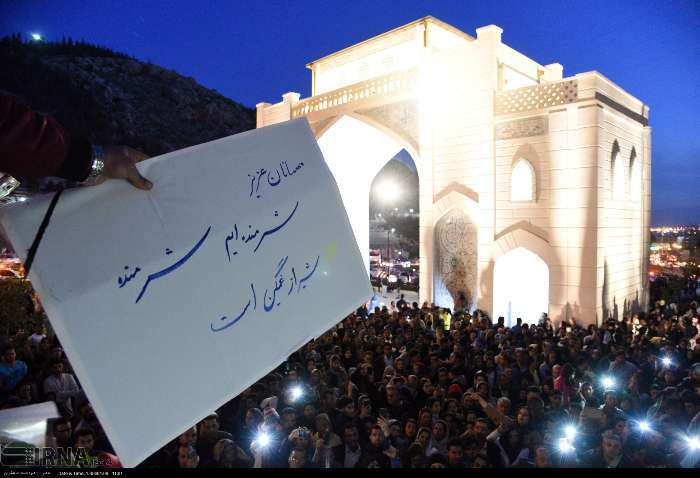 مهمانان عزیز
شرمنده ایم شرمنده
شیراز غمگین است
IRNA